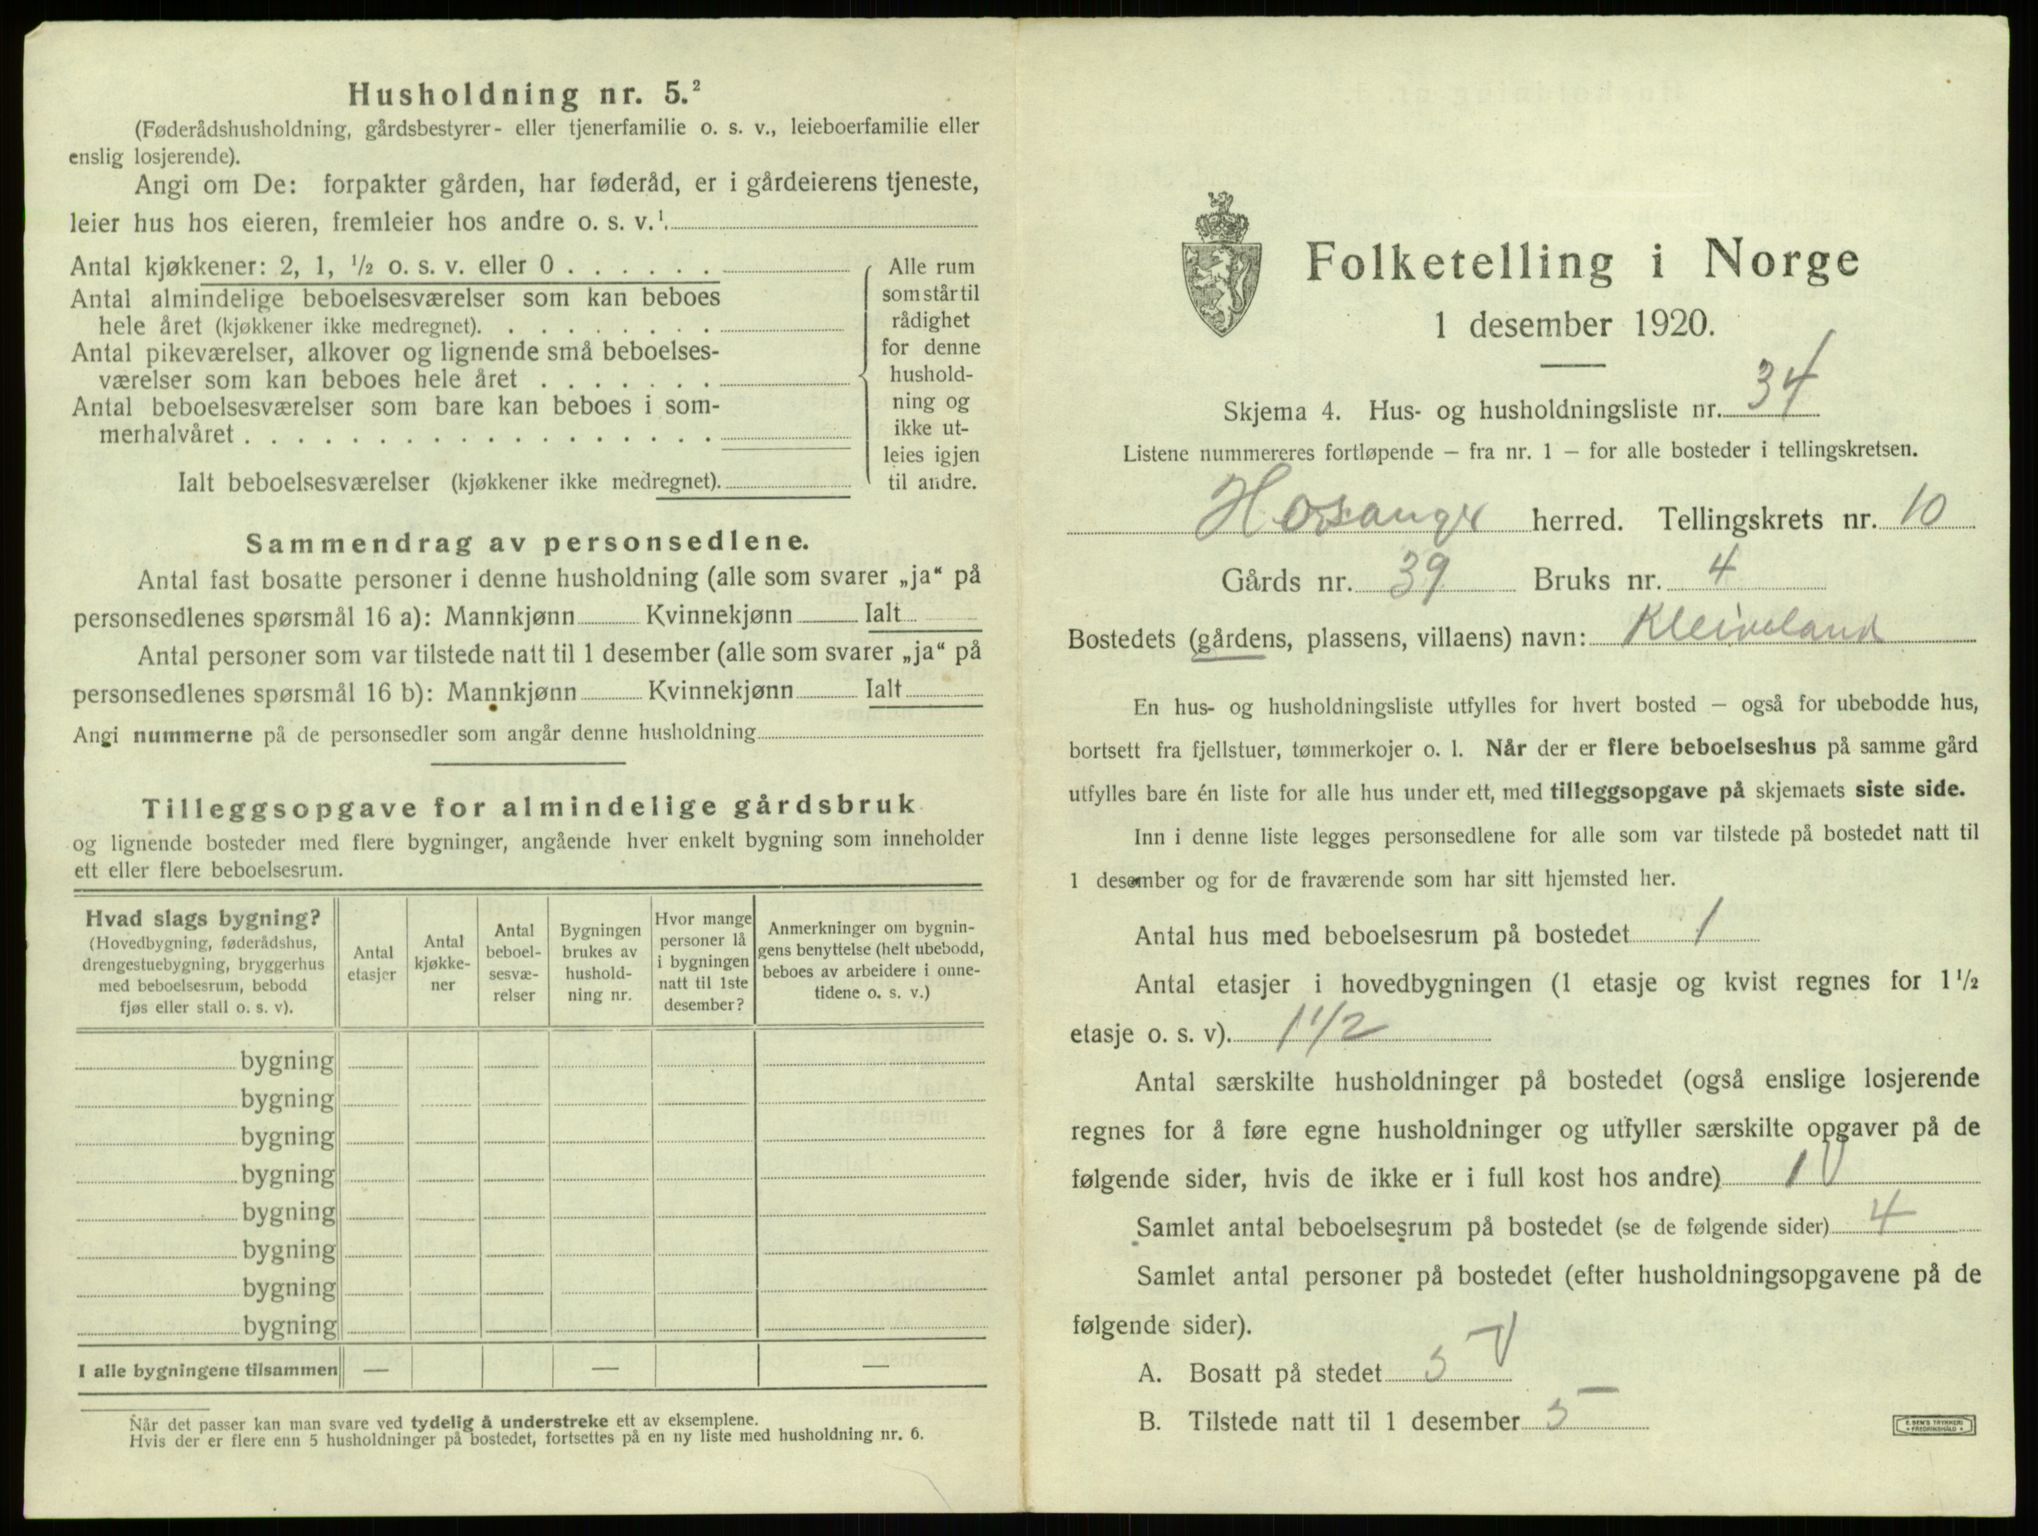 Husholdning nr. 5.²
(Føderådshusholdning, gårdsbestyrer- eller tjenerfamilie o. s. v., leieboerfamilie eller
enslig losjerende).
Angi om De: forpakter gården, har føderåd, er i gårdeierens tjeneste,
leier hus hos eieren, fremleier hos andre o. s. v.¹.
Antal kjøkkener: 2, 1, ½ o. s. v. eller 0 . . . . . .
Antal almindelige beboelsesværelser som kan beboes
hele året (kjøkkener ikke medregnet). . . . . . . . .
Antal pikeværelser, alkover og lignende små beboelses-
værelser som kan beboes hele året . . . . . . .
Antal beboelsesværelser som bare kan beboes i som-
merhalvåret . . . . . . . . . . . . . . . . . .
Ialt beboelsesværelser (kjøkkener ikke medregnet).
Alle rum
som står til
rådighet
for denne
hushold-
ning og
ikke ut-
leies igjen
til andre.
Sammendrag av personsedlene.
Antal fast bosatte personer i denne husholdning (alle som svarer „ja“ på
personsedlenes spørsmål 16 a): Mannkjønn Kvinnekjønn Ialt
Antal personer som var tilstede natt til 1 desember (alle som svarer „ja“ på
personsedlenes spørsmål 16 b): Mannkjønn Kvinnekjønn Ialt
Angi nummerne på de personsedler som angår denne husholdning
Tilleggsopgave for almindelige gårdsbruk
og lignende bosteder med flere bygninger, angående hver enkelt bygning som inneholder
ett eller flere beboelsesrum.
Hvad slags bygning?
(Hovedbygning, føderådshus,
drengestuebygning, bryggerhus
med beboelsesrum, bebodd
fjøs eller stall o. s. v).
Antal
etasjer
Antal
kjøkke-
ner
Antal
beboel-
sesvæ-
relser
Bygningen
brukes av
hushold-
ning nr.
Hvor mange
personer lå
i bygningen
natt til 1ste
desember?
Anmerkninger om bygnin-
gens benyttelse (helt ubebodd,
beboes av arbeidere i onne-
tidene o. s. v.)
bygning
bygning
bygning
bygning
bygning
bygning
bygning
bygning
I alle bygningene tilsammen — — —
Når det passer kan man svare ved tydelig å understreke ett av eksemplene.
Hvis der er flere enn 5 husholdninger på bostedet, fortsettes på en ny liste med husholdning nr. 6.
Folketelling i Norge
1 desember 1920.
Skjema 4. Hus- og husholdningsliste nr. 34
Listene nummereres fortløpende — fra nr. 1 — for alle bosteder i tellingskretsen.
Hosanger herred. Tellingskrets nr. 10
Gårds nr. 39 Bruks nr. 4
Bostedets (gårdens, plassens, villaens) navn: Kleiveland
En hus- og husholdningsliste utfylles for hvert bosted — også for ubebodde hus,
bortsett fra fjellstuer, tømmerkojer o. l. Når der er flere beboelseshus på samme gård
utfylles bare én liste for alle hus under ett, med tilleggsopgave på skjemaets siste side.
Inn i denne liste legges personsedlene for alle som var tilstede på bostedet natt til
1 desember og for de fraværende som har sitt hjemsted her.
Antal hus med beboelsesrum på bostedet 1
Antal etasjer i hovedbygningen (1 etasje og kvist regnes for 1½
etasje o. s. v). 1 1/2
Antal særskilte husholdninger på bostedet (også enslige losjerende
regnes for å føre egne husholdninger og utfyller særskilte opgaver på de
følgende sider, hvis de ikke er i full kost hos andre) 1 V
Samlet antal beboelsesrum på bostedet (se de følgende sider) 4
Samlet antal personer på bostedet (efter husholdningsopgavene på de
følgende sider).
A. Bosatt på stedet 5 V
B. Tilstede natt til 1 desember 5
E. SEM'S TRYKKERI
• FREDRIKSHALD •